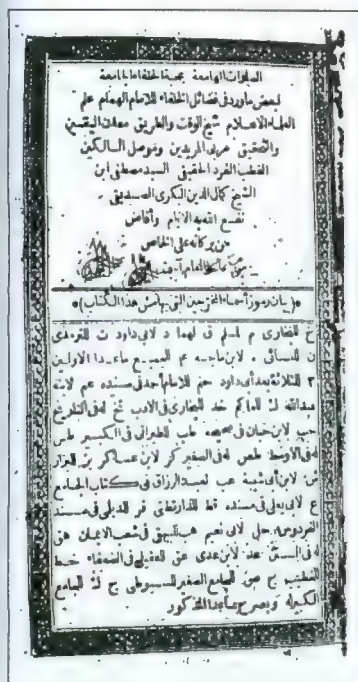 الهامعة بمحبة الخلفاء الجامعة
لبعض ماورد فى فضائل الخلفاء للامام الهمام علم
العلماء الاعلام شيخ الوقت والطريق معدن اليقين
والتحقيق مربى المريدين وموصل السالكين
القطب الفرد الحقيقى السيد مصطفى ابن
الشيخ كمال الدين البكرى الصديقى
نفع الله به الانام وأفاض
من بركاته على الخاص
والعام آمين
(بيان رموز أسماء المخرجين التى بهامش هذا الكتاب)
خ للبخارى م لمسلم ق لهما د لابى داود ت للترمذى
ن للنسائى ه لابن ماجه ع للجميع ماعدا الاولين
٣ للثلاثة بعد ابى داود حم للامام أحمد فى مسنده عم لابنه
عبدالله ك للحاكم خد للبخارى فى الادب تخ له فى التاريخ
حب لابن حبان فى صحيحه طب للطبرانى فى الكبير طس
له فى الاوسط طص له فى الصغير كر لابن عساكر بز للبزار
ش لابن أبى شيبة عب لعبد الرزاق فى كتاب الجامع
ع لابى يعلى فى مسنده قط للدارقطنى فر للديلمى فى مسند
الفردوس حل لابى نعيم هب للبيهقى فى شعب الايمان هق
له فى السنن عد لابن عدى عق للعقيلى فى الضعفاء خط
للخطيب ج ص للجامع الصغير للسيوطى ج ك للجامع
الكبير له ويصرح بماعدا المذكور